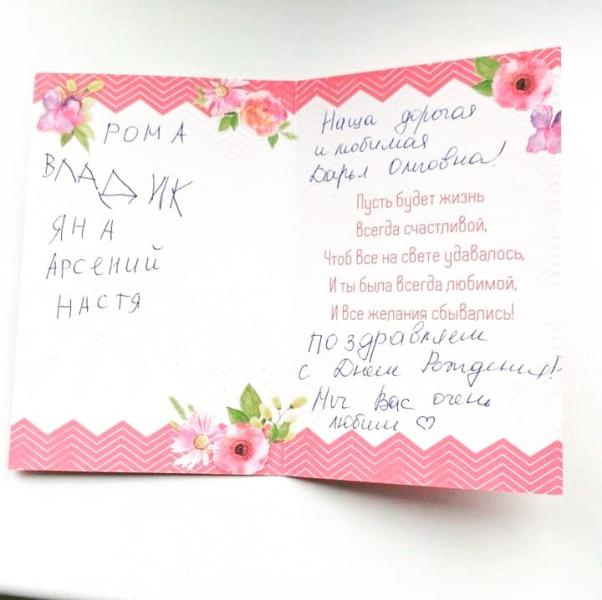 РОМА
ВЛАДИК
ЯНА
АРСЕНИЙ
НАСТЯ
Наша дорогая
и любимая
Дарья Олеговна!
Пусть будет жизнь
Всегда счастливой,
Чтоб все на свете удавалось,
И ты была всегда любимой,
И все желания сбывались!
Поздравляем
с Днем Рождения!
Мы Вас очень
любим ♡